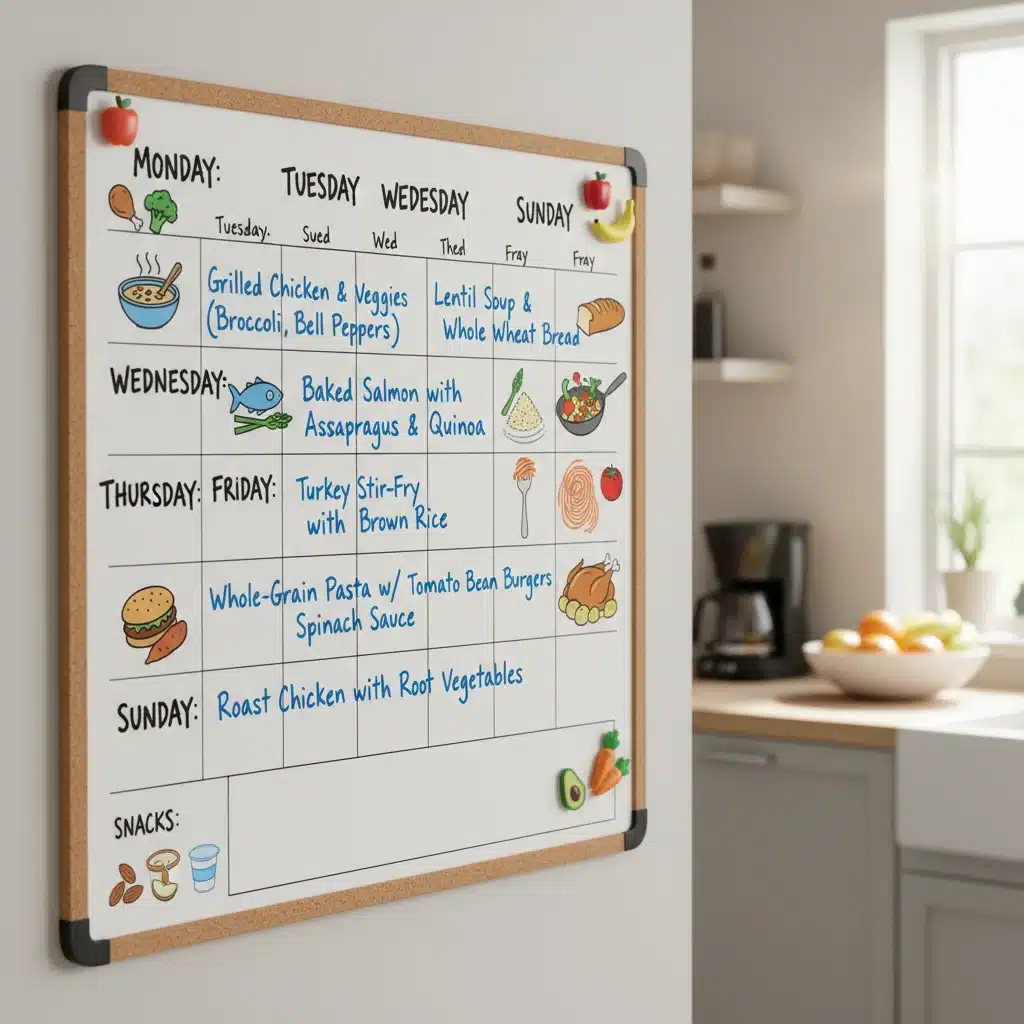 MONDAY:
TUESDAY WEDESDAY SUNDAY
Tuesday. Sued Wed Thed Fray Fray
Grilled Chicken & Veggies
(Broccoli, Bell Peppers)
Lentil Soup &
Whole Wheat Bread
WEDNESDAY:
Baked Salmon with
Assapragus & Quinoa
THURSDAY: FRIDAY:
Turkey Stir-Fry
with Brown Rice
Whole-Grain Pasta w/ Tomato Bean Burgers
Spinach Sauce
SUNDAY:
Roast Chicken with Root Vegetables
SNACKS: